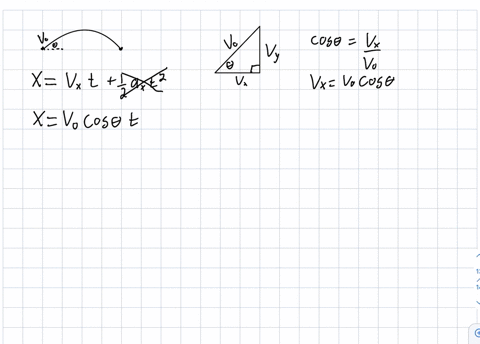 V₀
θ
X = Vₓ t + 1/2 aₓ t²
X = V₀ cosθ t
V₀
θ
V_y
Vₓ
cosθ = Vₓ/V₀
Vₓ = V₀ cosθ